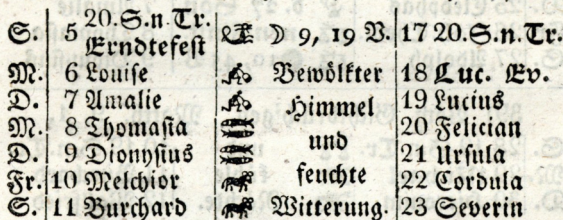 S. 5 20.S.n.Tr. Erndtefest ☽ 9, 19 V. 17 20.S.n.Tr.
M. 6 Louise Bewölkter 18 Luc. Ev.
D. 7 Amalie Himmel 19 Lucius
M. 8 Thomasia und 20 Felician
D. 9 Dionysius 21 Ursula
Fr. 10 Melchior feuchte 22 Cordula
S. 11 Burchard Witterung. 23 Severin